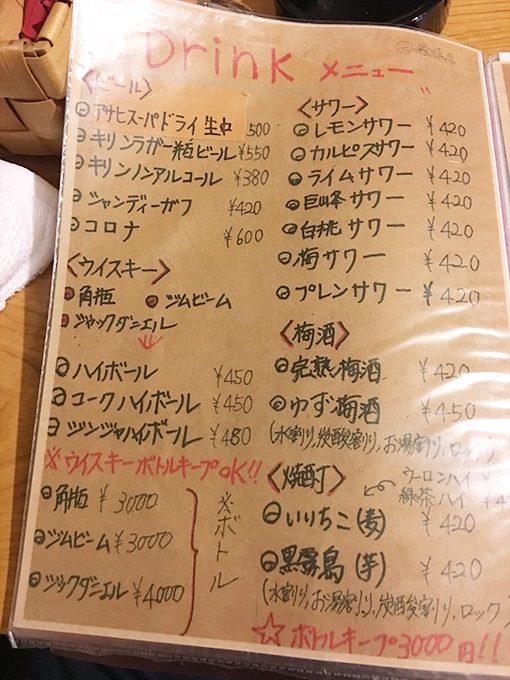 Drink メニュー
〈ビール〉
アサヒスーパードライ 生中 500
キリンラガー 瓶ビール ¥550
キリンノンアルコール ¥380
シャンディーガフ ¥420
コロナ ¥600
〈ウイスキー〉
角瓶 ジムビーム
ジャックダニエル
ハイボール ¥450
コークハイボール ¥450
ジンジャハイボール ¥480
※ウイスキーボトルキープOK!!
角瓶 ¥3000
ジムビーム ¥3000
ジャックダニエル ¥4000
※ボトル
〈サワー〉
レモンサワー ¥420
カルピスサワー ¥420
ライムサワー ¥420
巨峰サワー ¥420
白桃サワー ¥420
梅サワー ¥420
プレンサワー ¥420
〈梅酒〉
完熟梅酒 ¥420
ゆず梅酒 ¥450
(水割り,炭酸割り,お湯割り,ロック)
〈焼酎〉
ウーロンハイ ¥
緑茶ハイ ¥4
いりちこ(麦) ¥420
黒霧島(芋) ¥420
(水割り,お湯割り,炭酸割り,ロック)
☆ボトルキープ3000円!!